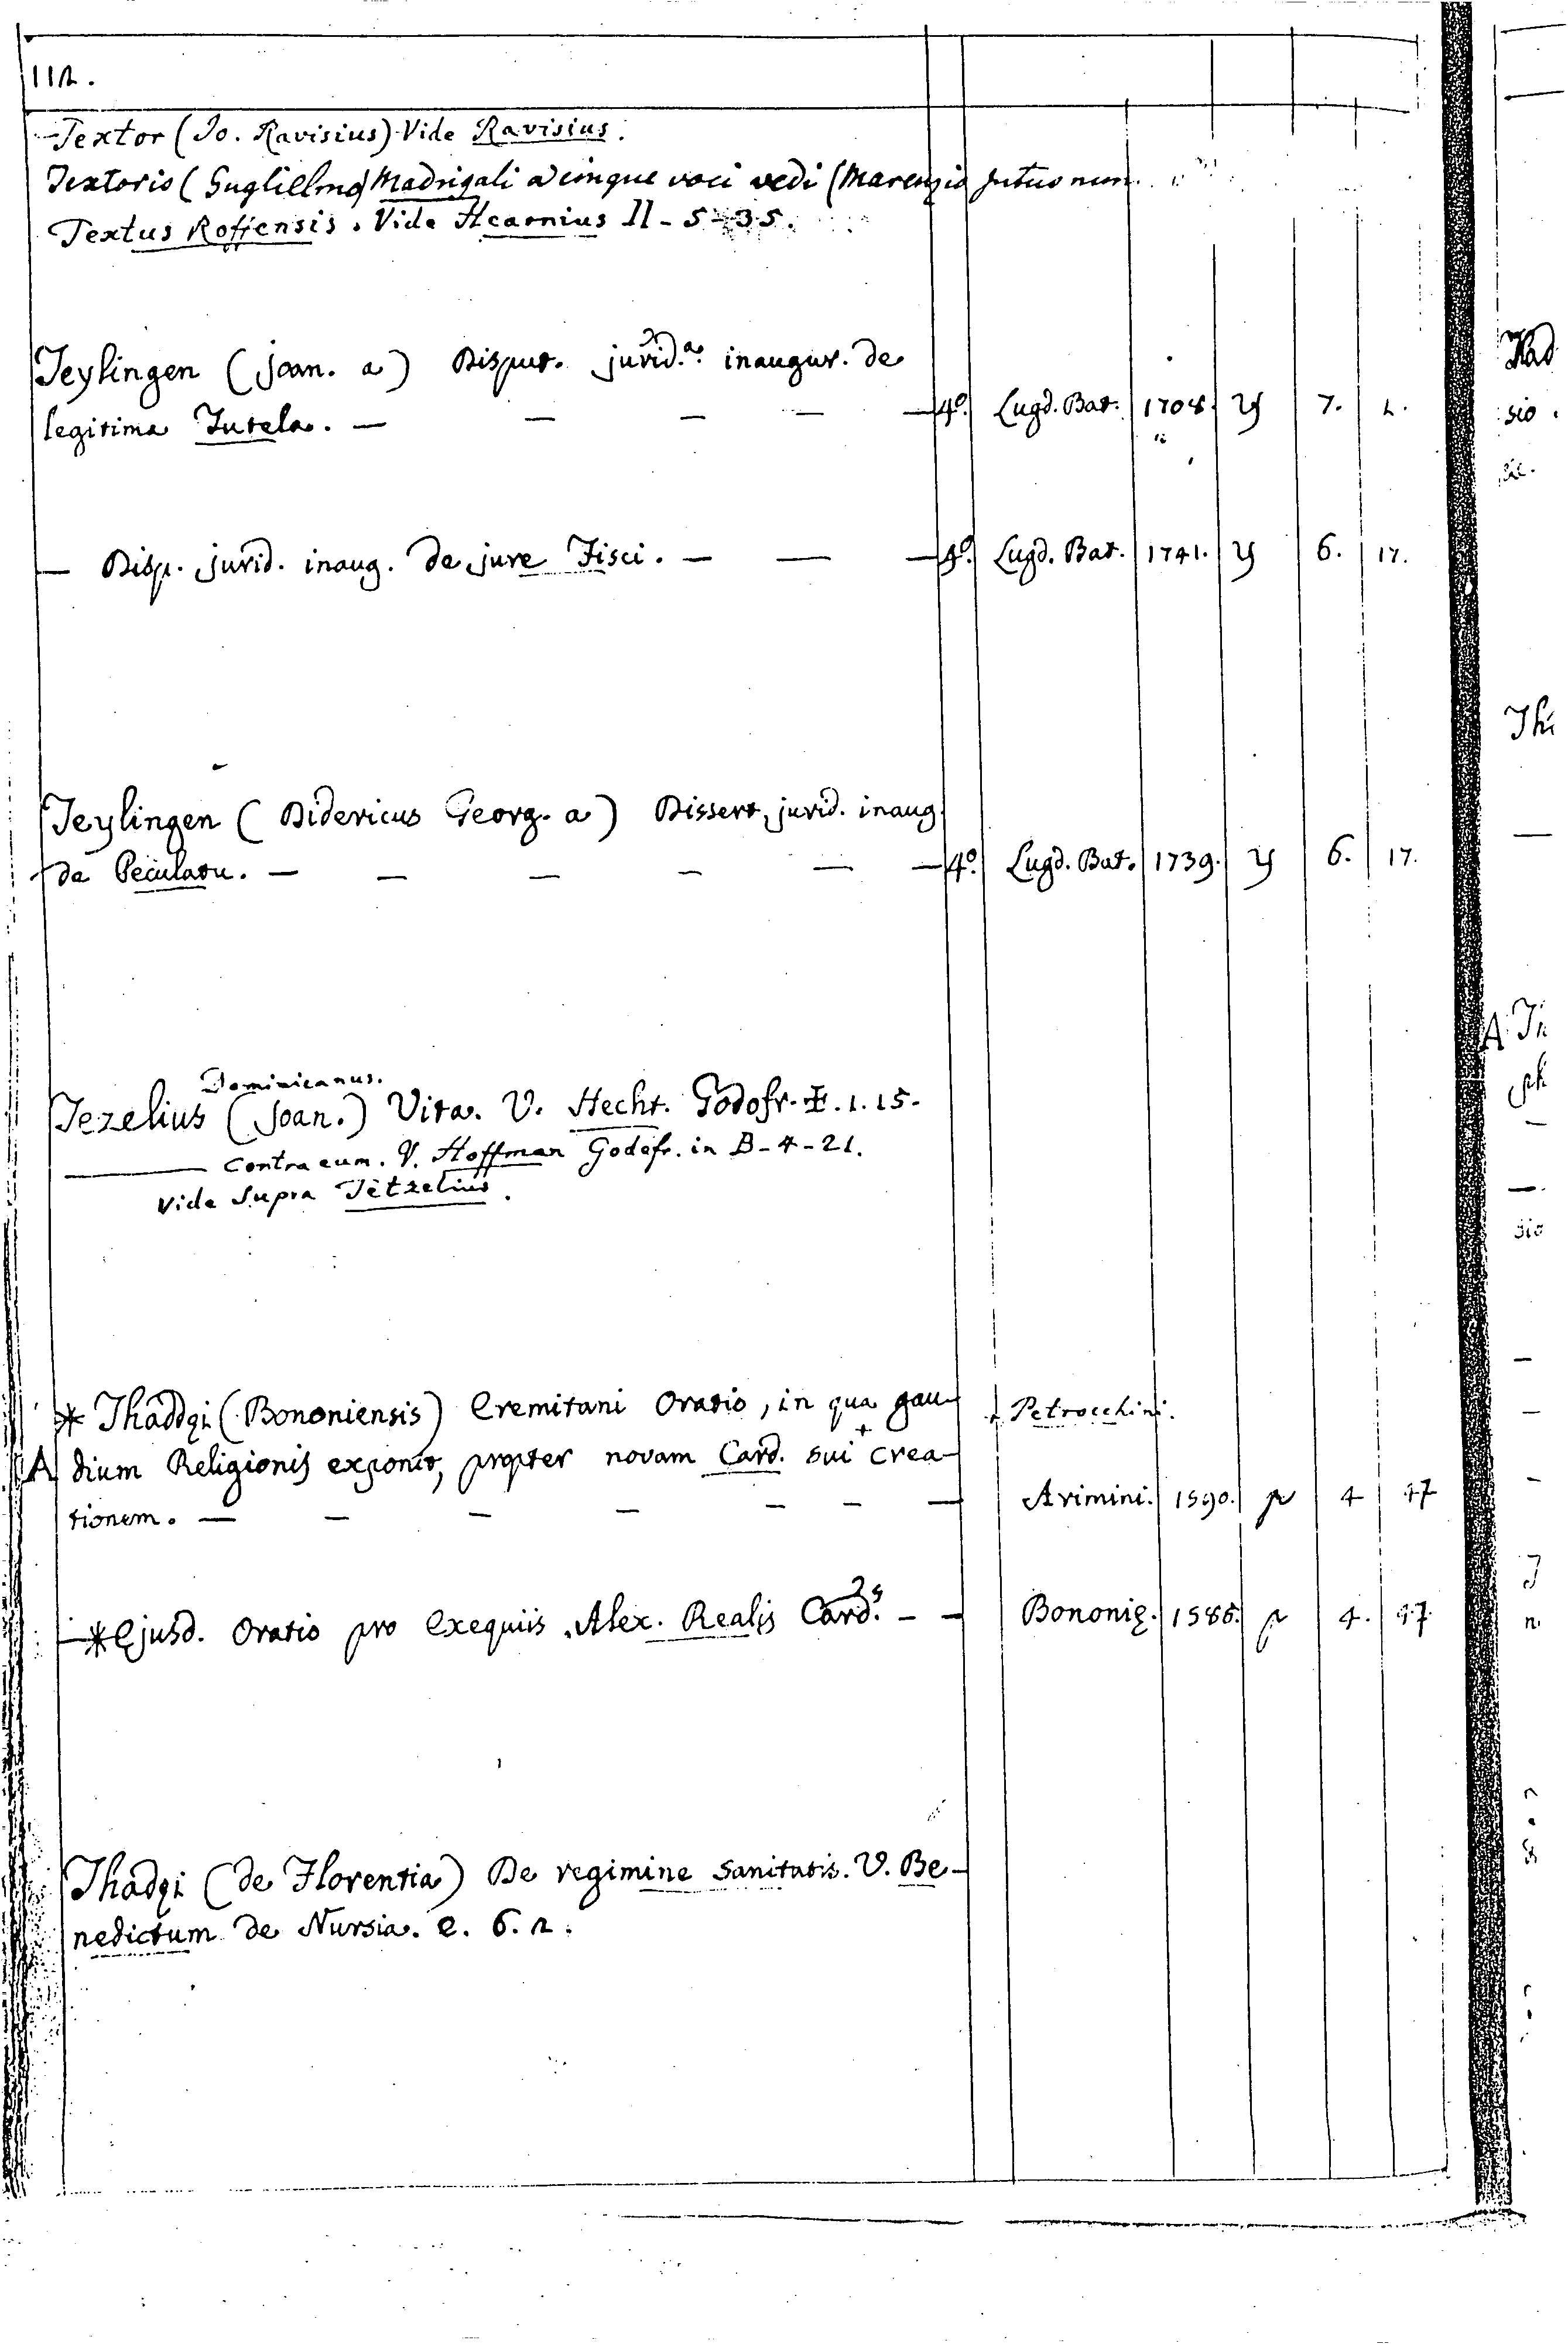 112.
Textor (Jo. Ravisius) Vide Ravisius.
Textoris (Guglielmo) Madrigali a cinque voci vedi (Marenzio
Textus Roffensis. Vide Hearnius II-5-35.
Teylingen (Joan. a) Disput. jurid.a inaugur. de
legitima Tutela. — — — — — 4o. Lugd. Bat. 1708. y 7. 2.
— Disp. jurid. inaug. de jure Fisci. — — — 4o. Lugd. Bat. 1741. y 6. 17.
Teylingen (Didericus Georg. a) Dissert. jurid. inaug.
de Peculatu. — — — — — — 4o. Lugd. Bat. 1739. y 6. 17.
Dominicanus.
Tezelius (Joan.) Vita. V. Hecht. Godofr. I. 1. 15.
— contra eum. V. Hoffman Godefr. in B-4-21.
Vide Supra Tetzelius.
* Thaddęi (Bononiensis) Eremitani Oratio, in qua gau- + Petrocchini.
A dium Religionis exponit, propter novam Card. sui + crea-
tionem. — — — — — — — Arimini. 1590. p 4 47
— * Ejusd. Oratio pro exequiis Alex. Realis Card. — — Bononię. 1586. p 4. 47.
Thadęi (de Florentia) De regimine Sanitatis. V. Be-
nedictum de Nursia. e. 6. 2.